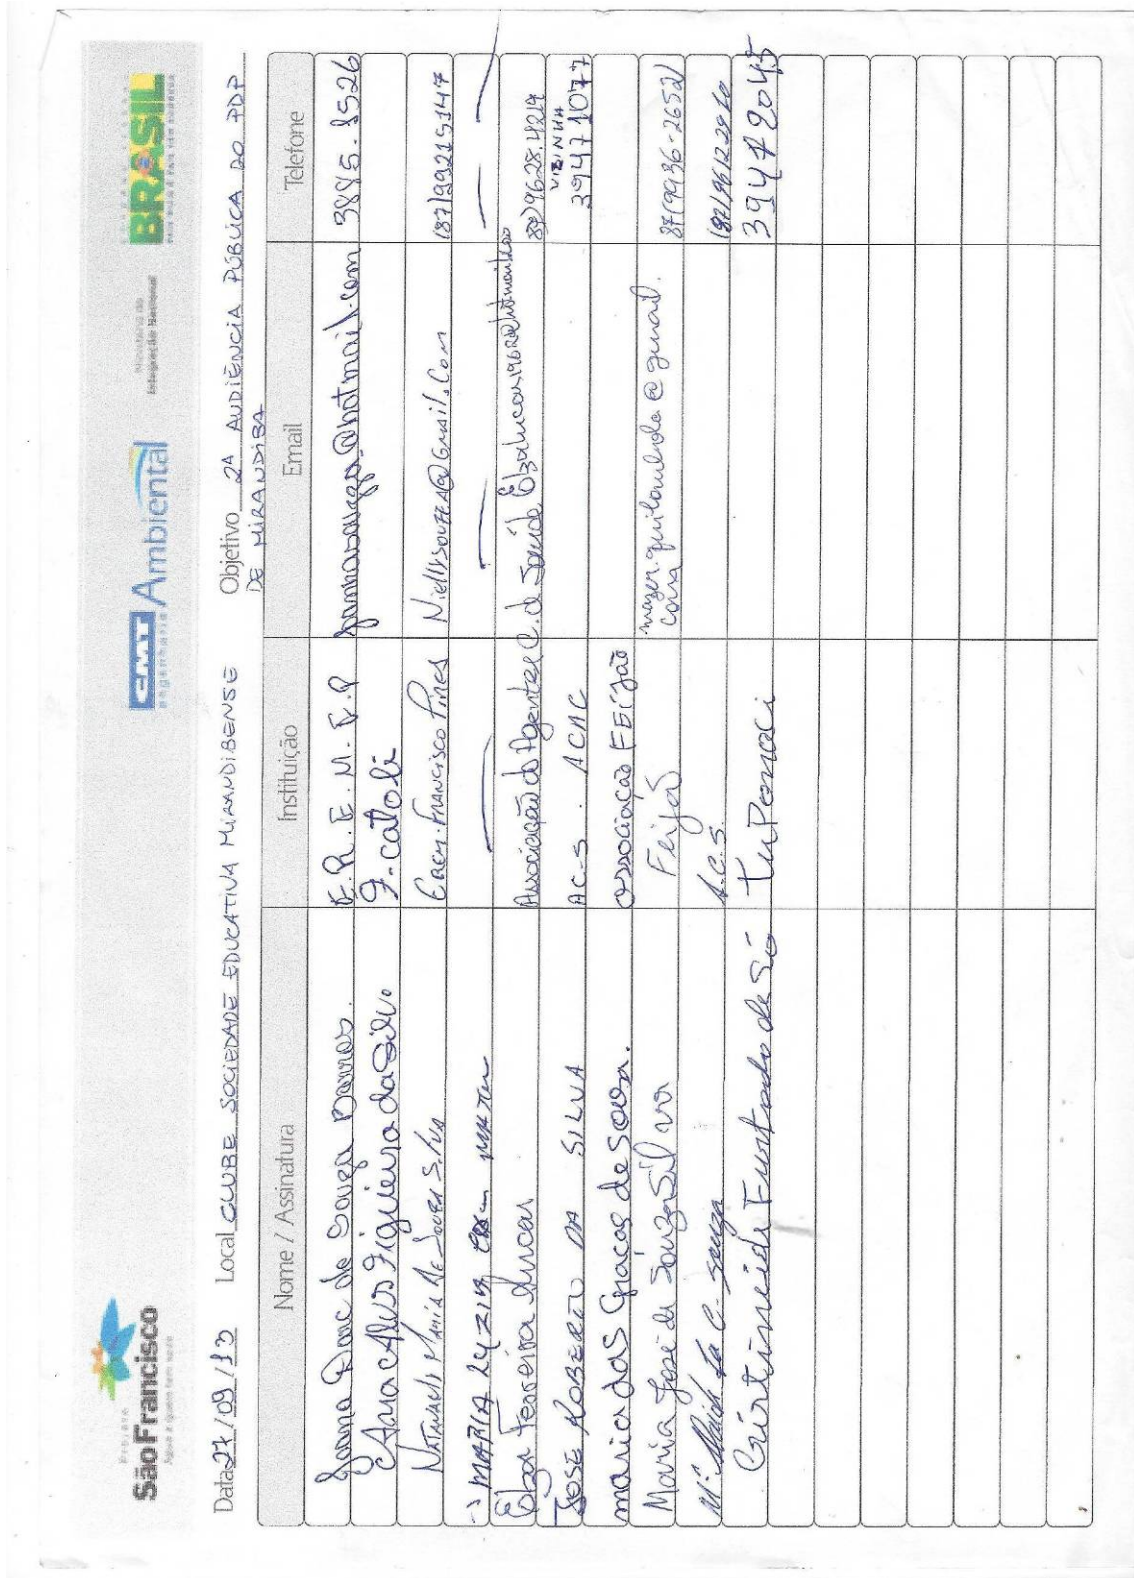 Projeto
São Francisco
Água a quem tem sede
CMT Ambiental
engenharia
Ministério da
Integração Nacional
BRASIL
Data 27/09/13 Local CLUBE SOCIEDADE EDUCATIVA MIRANDIBENSE Objetivo 2ª AUDIÊNCIA PÚBLICA DO PDP
DE MIRANDIBA
Nome / Assinatura Instituição Email Telefone
Joana Darc de Souza Barros. E.R.E.M.F.P 3885-1526
Ana Alves Figueira da Silva J. catoli
Nathaely Maria de Souza Silva Erem. Francisco Pires Niellysouza@Gmail.Com (87)99215147
MARIA LUZIA
Elza Ferreira Lucas Associação do Agentes C. de Saúde Elzalucas1962@hotmail.com 87)9628.4219
JOSÉ ROBERTO DA SILVA AC-S. ACMC VIZINHA
39471077
maria das Graças de Souza. associação FEijão
Maria José de Souza Silva Feijão mazer.quilombola@gmail. 87(9936-2652)
com
Mª A.C.S. (87)96122920
Cristineide Furtado de Sá tuPanaci 39472045